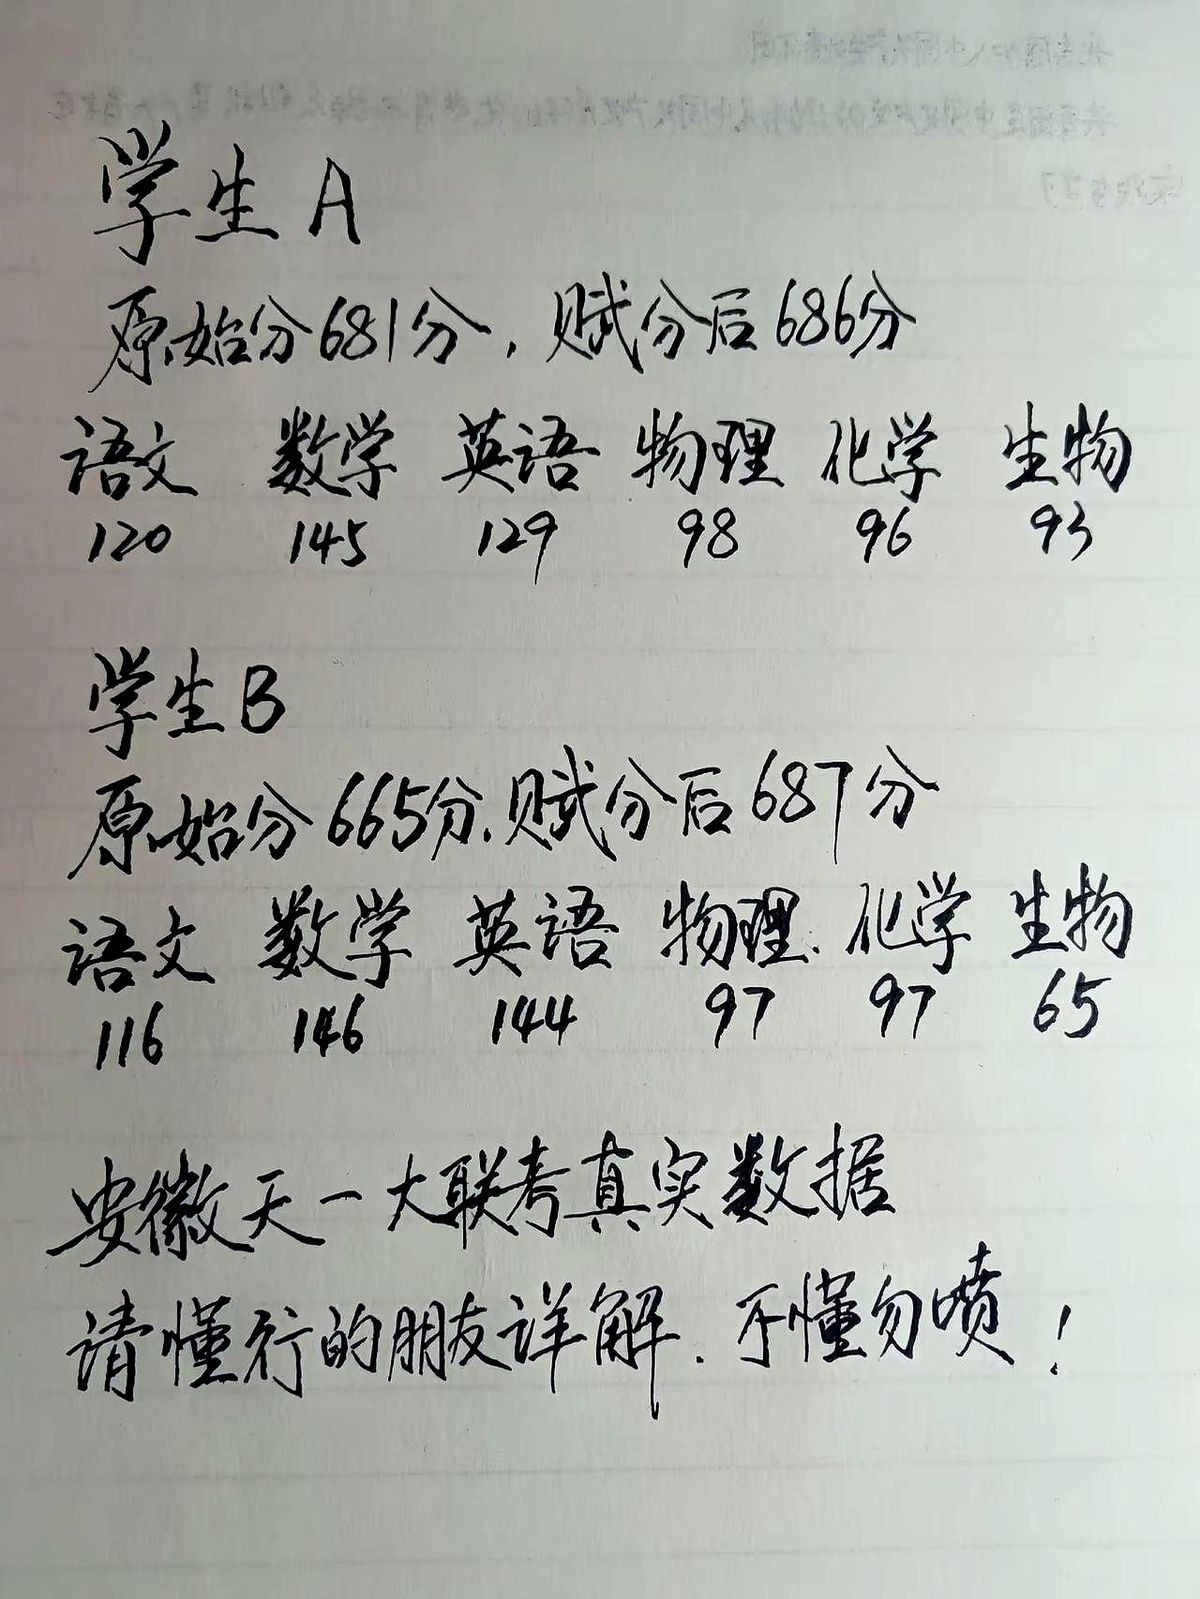 学生A
原始分681分，赋分后686分
语文 数学 英语 物理 化学 生物
120 145 129 98 96 93
学生B
原始分665分.赋分后687分
语文 数学 英语 物理. 化学 生物
116 146 144 97 97 65
安徽天一大联考真实数据
请懂行的朋友详解.不懂勿喷！